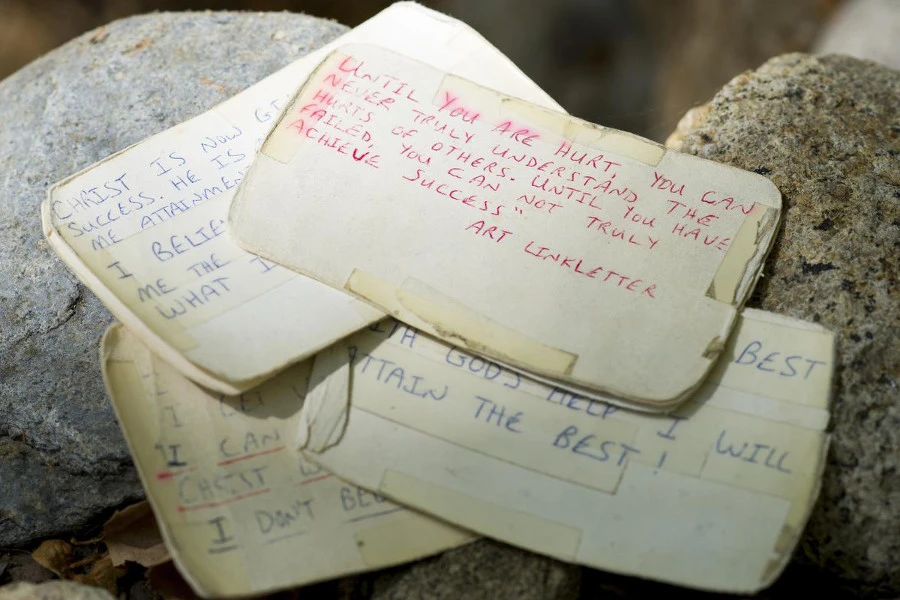 UNTIL YOU ARE HURT, YOU CAN
NEVER TRULY UNDERSTAND THE
HURTS OF OTHERS. UNTIL YOU HAVE
FAILED, YOU CAN NOT TRULY
ACHIEVE SUCCESS."
ART LINKLETTER
CHRIST IS NOW GI
SUCCESS. HE IS
ME ATTAINMEN
I BELIE
ME THE
WHAT I
BEST
ITH GODS HELP I WILL
TTAIN THE BEST!
I LET
I CAN
CHRIST IS
I DON'T BEL